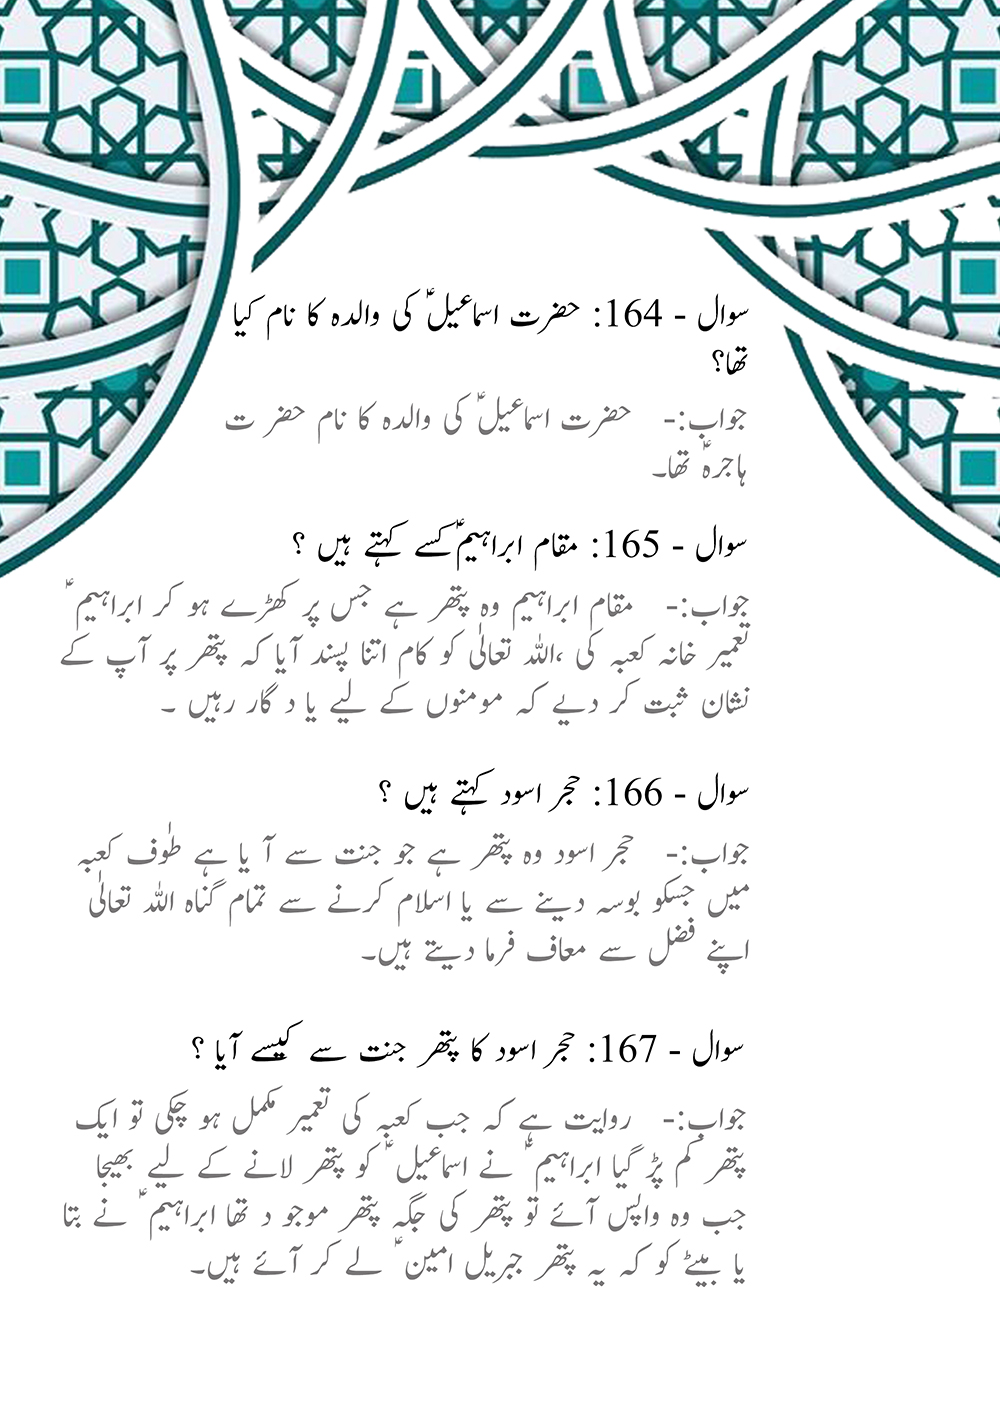 سوال - 164: حضرت اسماعیلؑ کی والدہ کا نام کیا
تھا؟
جواب:- حضرت اسماعیلؑ کی والدہ کا نام حضر ت
ہاجرہؑ تھا۔
سوال - 165: مقام ابراہیمؑ کسے کہتے ہیں ؟
جواب:- مقام ابراہیم وہ پتھر ہے جس پر کھڑے ہو کر ابراہیم ؑ
تعمیر خانہ کعبہ کی ،اللہ تعالٰی کو کام اتنا پسند آیا کہ پتھر پر آپ کے
نشان ثبت کر دیے کہ مومنوں کے لیے یا د گار رہیں ۔
سوال - 166: حجر اسود کہتے ہیں ؟
جواب:- حجر اسود وہ پتھر ہے جو جنت سے آ یا ہے طٰوف کعبہ
میں جسکو بوسہ دینے سے یا اسلام کرنے سے تمام گناہ اللہ تعالٰی
اپنے فضل سے معاف فرما دیتے ہیں۔
سوال - 167: حجر اسود کا پتھر جنت سے کیسے آیا ؟
جواب:- روایت ہے کہ جب کعبہ کی تعمیر مکمل ہو چکی تو ایک
پتھر کم پڑ گیا ابراہیم ؑ نے اسماعیل ؑ کو پتھر لانے کے لیے بھیجا
جب وہ واپس آئے تو پتھر کی جگہ پتھر موجو د تھا ابراہیم ؑ نے بتا
یا بیٹے کو کہ یہ پتھر جبریل امین ؑ لے کر آئے ہیں۔